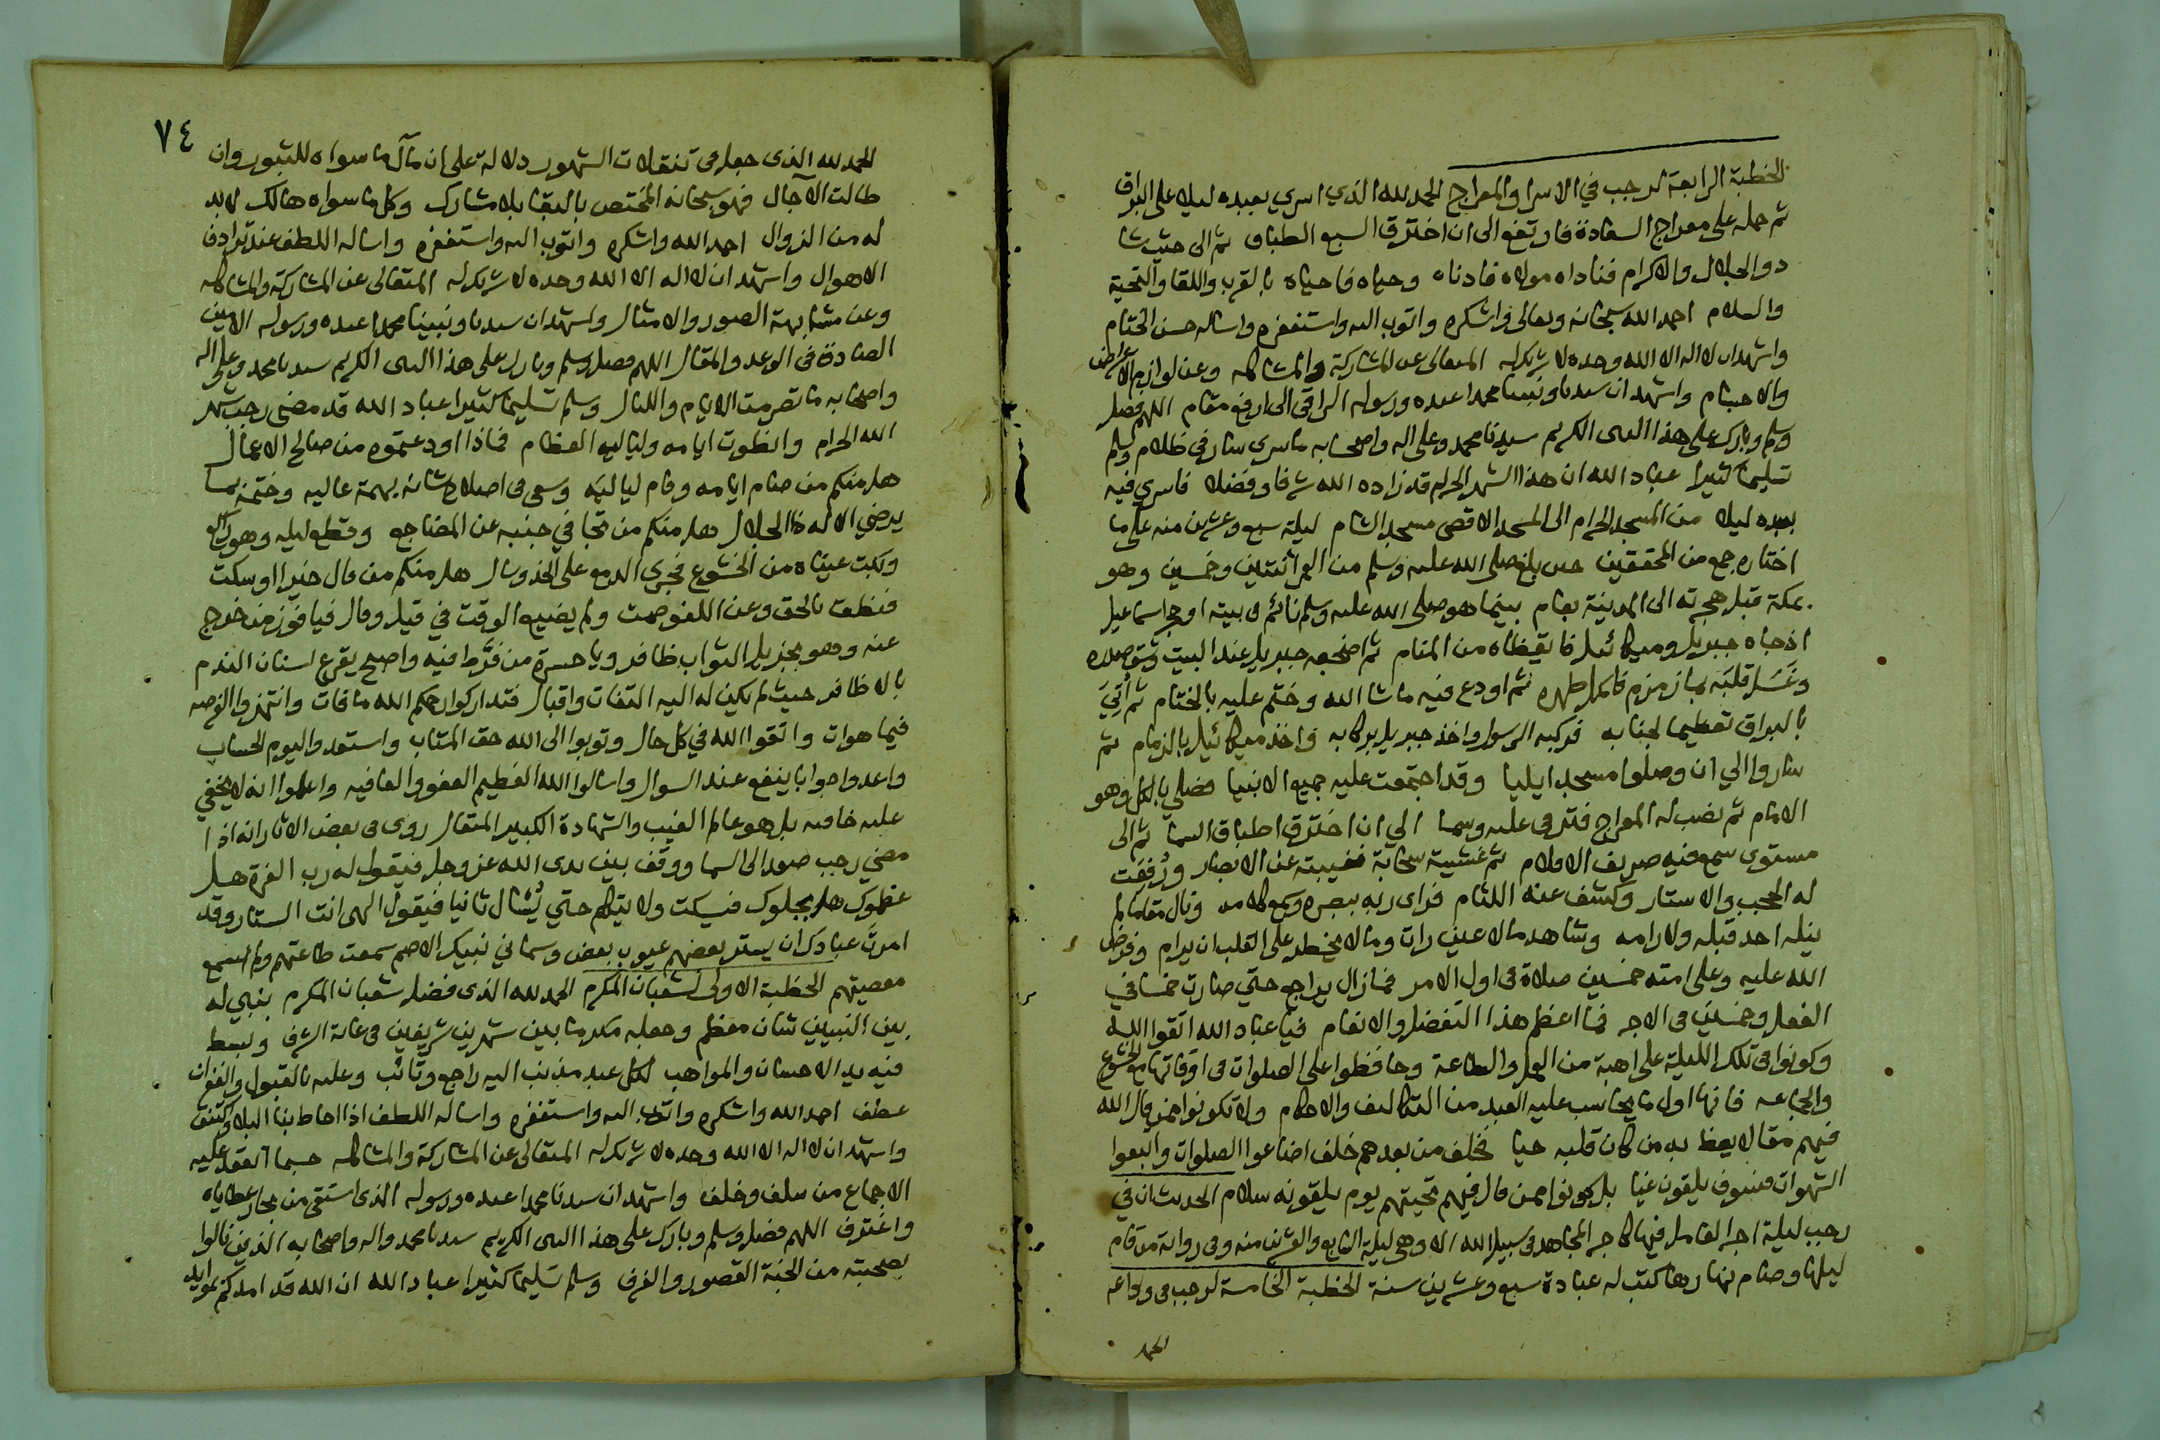 الخطبة الرابعة لرجب في الاسرا والمعراج الحمد لله الذي اسري بعبده ليلا على البراق
ثم حمله على معراج السعادة فارتفع الى ان اخترق السبع الطباق ثم الى حيث شا
ذو الجلال والاكرام فناداه مولاه فادناه وحياه فاحياه بالقرب واللقا والتحية
والسلام احمد الله سبحانه وتعالى واشكره واتوب اليه واستغفره واساله حسن الختام
واشهد ان لا اله الا الله وحده لا شريك له المتعالى عن المشاركة والمشاكله وعن لوازم الاعراض
والاجسام واشهد ان سيدنا ونبينا محمدا عبده ورسوله الراقي الى ارفع مقام اللهم فصل
وسلم وبارك على هذا النبى الكريم سيدنا محمد وعلى اله واصحابه ما سري سار في ظلام وسلم
تسليما كثيرا عباد الله ان هذا الشهر الحرام قد زاده الله شرفا وفضلا فاسري فيه
بعبده ليلا من المسجد الحرام الى المسجد الاقصى مسجد الشام ليلة سبع وعشرين منه على ما
اختاره جمع من المحققين حين بلغ صلى الله عليه وسلم من العمر اثنتين وخمسين وهو
بمكة قبل هجرته الى المدينة بعام بينما هو صلى الله عليه وسلم نائم فى بيته او حجر اسماعيل
اذ جاه جبريل وميكائيل فايقظاه من المنام ثم اضجعه جبريل عند البيت وشق صدره
وغَسَل قلبَه بماء زمزم فاكمل طهره ثم اودع فيه ما شا الله وختم عليه بالختام ثم اُتِيَ
بالبراق تعظيما لجنابه فركبه الرسول واخذ جبريل بركابه واخذ ميكائيل بالزمام ثم
ساروا الي ان وصلوا مسجد ايليا وقد اجتمعت عليه جميع الانبيا فصلي بالكل وهو
الامام ثم نصب له المعراج فترقى عليه وسما الي ان اخترق اطباق السما ثم الى
مستوى سمع فيه صريف الاقلام ثم غشيته سحابة فغيبته عن الابصار ورُفِعَت
له الحجب والاستار وكشف عنه اللثام فراى ربه ببصره وسمع كلامه ونال مقاما لم
ينله احد قبله ولا رامه وشاهد ما لا عين رات وما لا يخطر على القلب ان يرام وفرض
الله عليه وعلى امته خمسين صلاة فى اول الامر فما زال يراجع حتي صارت خمسا في
الفعل وخمسين فى الاجر فما اعظم هذا التفضل والانعام فيا عباد الله اتقوا الله
وكونوا فى تلك الليلة على اهبة من العمل والطاعة وحافظوا على الصلوات فى اوقاتها مع الخشوع
والجماعه فانها اول ما يحاسب عليه العبد من التكاليف والاحكام ولا تكونوا ممن قال الله
فيهم مقالا يعظ به من كان قلبه حيا فخلف من بعدهم خلف اضاعوا الصلوات واتبعوا
الشهوات فسوف يلقون غيا بل كونوا ممن قال فيهم تحيتهم يوم يلقونه سلام الحديث ان في
رجب ليلة اجر العامل فيها كاجر المجاهد فى سبيل الله الا وهى ليلة السابع والعشرين منه وفى رواية من قام
ليلها وصام نهارها كتب له عبادة سبع وعشرين سنة الخطبة الخامسة لرجب فى وداعه
الحمد
٧٤
الحمد لله الذى جعل فى تنقلات الشهور دلالة على ان مآل ما سواه للثبور وان
طالت الآجال فهو سبحانه المختص بالبقا بلا مشارك وكل ما سواه هالك لا بد
له من الزوال احمد الله واشكره واتوب اليه واستغفره واساله اللطف عند ترادف
الاهوال واشهد ان لا اله الا الله وحده لا شريك له المتعالى عن المشاركة والمشاكله
وعن مشابهة الصور والامثال واشهد ان سيدنا ونبينا محمدا عبده ورسوله الامين
الصادق فى الوعد والمقال اللهم فصل وسلم وبارك على هذا النبى الكريم سيدنا محمد وعلى اله
واصحابه ما تصرمت الايام والليال وسلم تسليما كثيرا عباد الله قد مضى رجب شهر
الله الحرام وانطوت ايامه ولياليه العظام فماذا اودعتموه من صالح الاعمال
هل منكم من صام ايامه وقام لياليَه وسعى فى اصلاح شانه بهمة عاليه وختمه بما
يرضي الاله ذا الجلال هل منكم من تجافي جنبه عن المضاجع وقطع ليله وهو راكع
وبكت عيناه من الخشوع فجري الدمع على الخد وسال هل منكم من قال خيرا او سكت
فنطق بالحق وعن اللغو صمت ولم يضيع الوقت في قيل وقال فيا فوز من خرج
عنه وهو بجزيل الثواب ظافر ويا حسرة من فرَّط فيه واصبح يقرع اسنان الندم
بالاظافر حيث لم يكن له اليه التفات واقبال فتداركوا رحمكم الله ما فات وانتهزوا الفرصه
فيما هوات واتقوا الله في كل حال وتوبوا الى الله حق المتاب واستعدوا ليوم الحساب
واعدوا جوابا ينفع عند السوال واسالوا الله العظيم العفو والعافيه واعلموا انه لا يخفي
عليه خافيه بل هو عالم الغيب والشهادة الكبير المتعال روى فى بعض الاثار انه اذا
مضي رجب صعد الى السما ووقف بين يدى الله عز وجل فيقول له رب العزة هل
عظموك هل بجلوك فيسكت ولا يتكلم حتي يُسْال ثانيا فيقول الهى انت الستار وقد
امرتَ عبادك ان يستر بعضهم عيوب بعض وسماني نبيك الاصم سمعت طاعتهم ولم اسمع
معصيتهم الخطبة الاولى لشعبان المكرم الحمد لله الذى فضل شعبان المكرم بنبي له
بين النبيين شان معظم وجعله مكرما بين شهرين شريفين فى غاية الشرف وبسط
فيه يد الاحسان والمواهب لكل عبد مذنب اليه راجع وتائب وعليه بالقبول والغفران
عطف احمد الله واشكره واتوب اليه واستغفره واساله اللطف اذا احاط بنا البلا واكتنف
واشهد ان لا اله الا الله وحده لا شريك له المتعالى عن المشاركة والمشاكله حسبما انعقد عليه
الاجماع من سلف وخلف واشهد ان سيدنا محمدا عبده ورسوله الذى استقى من بحار عطاياه
واغترف اللهم فصل وسلم وبارك على هذا النبى الكريم سيدنا محمد واله واصحابه الذين نالوا
بصحبته من الجنة القصور والغرف وسلم تسليما كثيرا عباد الله ان الله قد امدكم بموايد